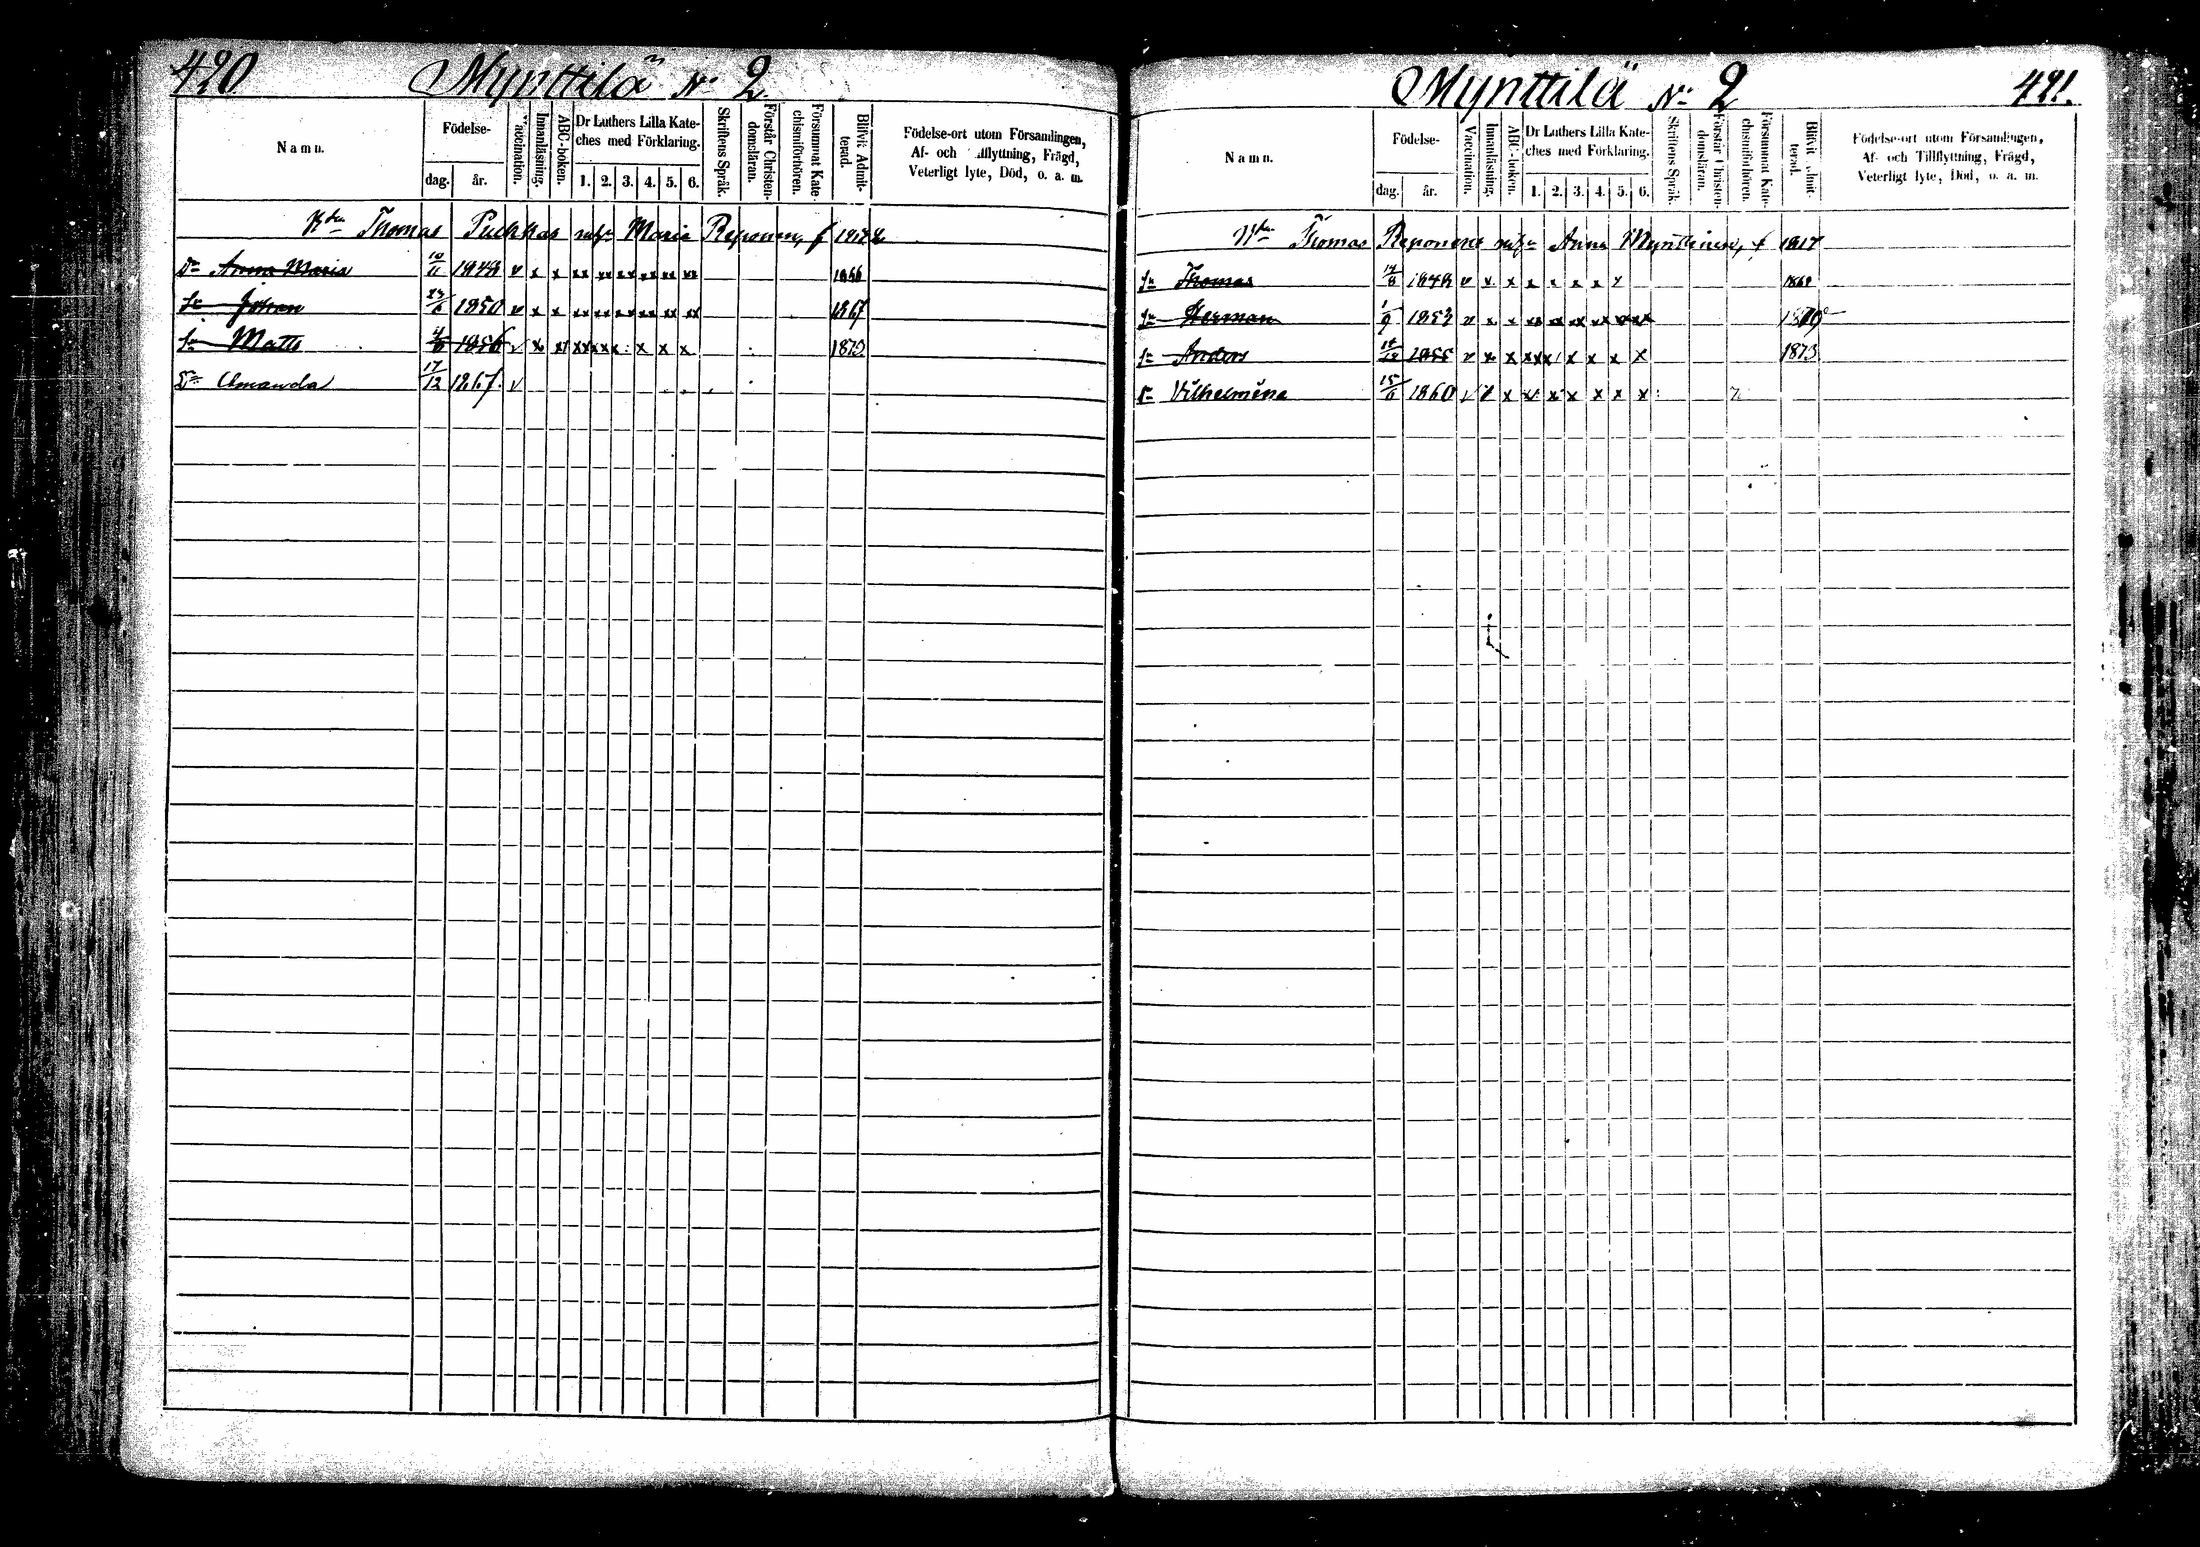 420 Mynttilä No 2.
Namn. Födelse- dag. år. Vaccination. Innanläsning. ABC-boken. Dr Luthers Lilla Kateches med Förklaring. 1. 2. 3. 4. 5. 6. Skriftens Språk. Förstår Christendomsläran. Försummat Katechismiförhören. Blifvit Admitterad. Födelse-ort utom Församlingen, Af- och Tillflyttning, Frägd, Veterligt lyte, Död, o. a. m.
Thomas Puchkas Maria Reponen, f
Dr Anna Maria 10/11 v x x xx xx xx xx xx xx 1866
Sn Johan 1850 v x x xx xx xx xx xx xx 1867
Sn Matts 1856 v x x x x x x 1873
Dr Amanda 17/12 1867. v
Mynttilä No 2 421.
Namn. Födelse- dag. år. Vaccination. Innanläsning. ABC-boken. Dr Luthers Lilla Kateches med Förklaring. 1. 2. 3. 4. 5. 6. Skriftens Språk. Förstår Christendomsläran. Försummat Katechismiförhören. Blifvit Admitterad. Födelse-ort utom Församlingen, Af- och Tillflyttning, Frägd, Veterligt lyte, Död, o. a. m.
Thomas Reponens Anna Mynttinen, f 1817
Sn Thomas 1848 v x x x x x x
Sn Herman 1/9 1853 v x x xx xx xx xx xx xx
Sn Anders 1855 v x x x x x x 1873
Dr Vilhelmina 15/6 1860 v x x x x x x x